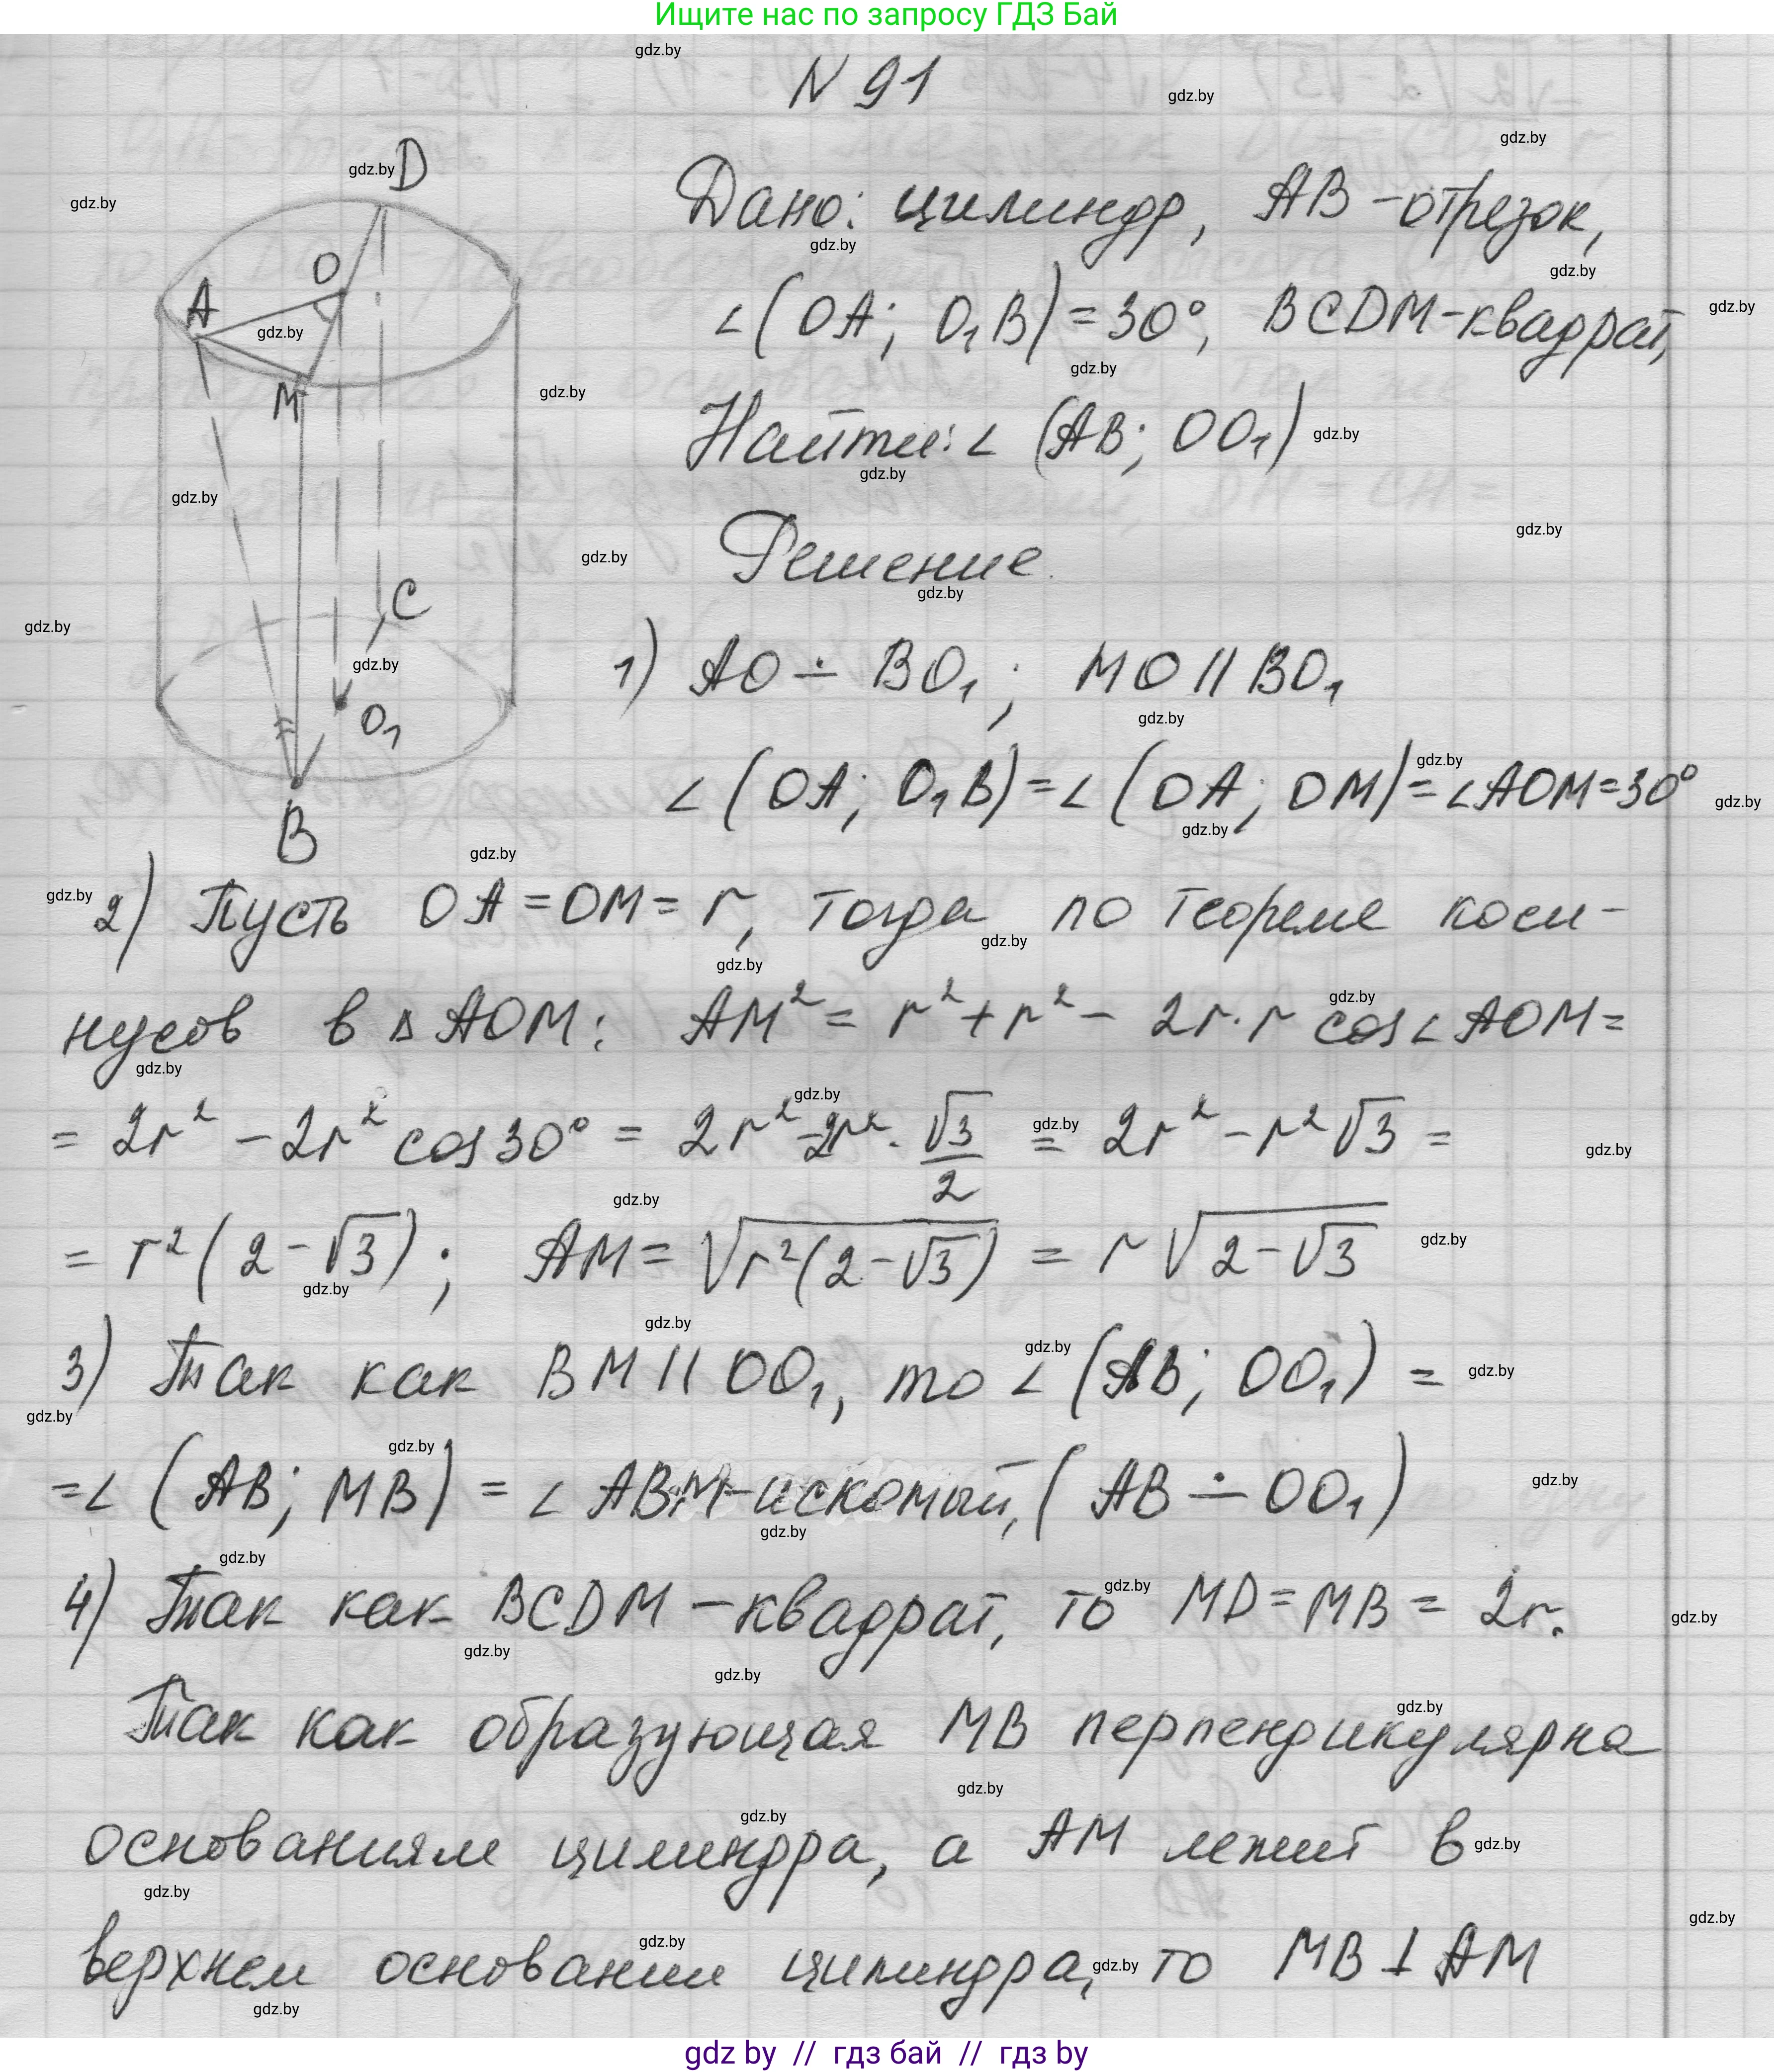 Ищите нас по запросу ГДЗ Бай
N 91
Дано: цилиндр, AB - отрезок,
∠(OA; O₁B) = 30°, BCDM - квадрат,
Найти: ∠(AB; OO₁)
Решение.
1) AO ∸ BO₁; MO || BO₁
∠(OA; O₁B) = ∠(OA; OM) = ∠AOM = 30°
D
O
A
M
C
O₁
B
2) Пусть OA = OM = r, тогда по теореме коси-
нусов в ΔAOM: AM² = r² + r² - 2r·r cos∠AOM =
= 2r² - 2r² cos30° = 2r² - 2r² · √3/2 = 2r² - r²√3 =
= r²(2 - √3); AM = √(r²(2 - √3)) = r√(2 - √3)
3) Так как BM || OO₁, то ∠(AB; OO₁) =
= ∠(AB; MB) = ∠ABM - искомый, (AB ∸ OO₁)
4) Так как BCDM - квадрат, то MD = MB = 2r.
Так как образующая MB перпендикулярна
основаниям цилиндра, а AM лежит в
верхнем основании цилиндра, то MB ⊥ AM
gdz by // гдз бай // гдз by